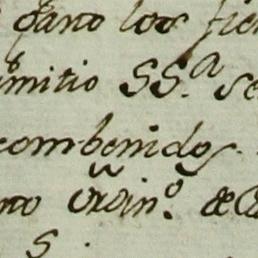 gano los fie
imitio SSª. se
combenidos.
nto Ordinº. de
S.